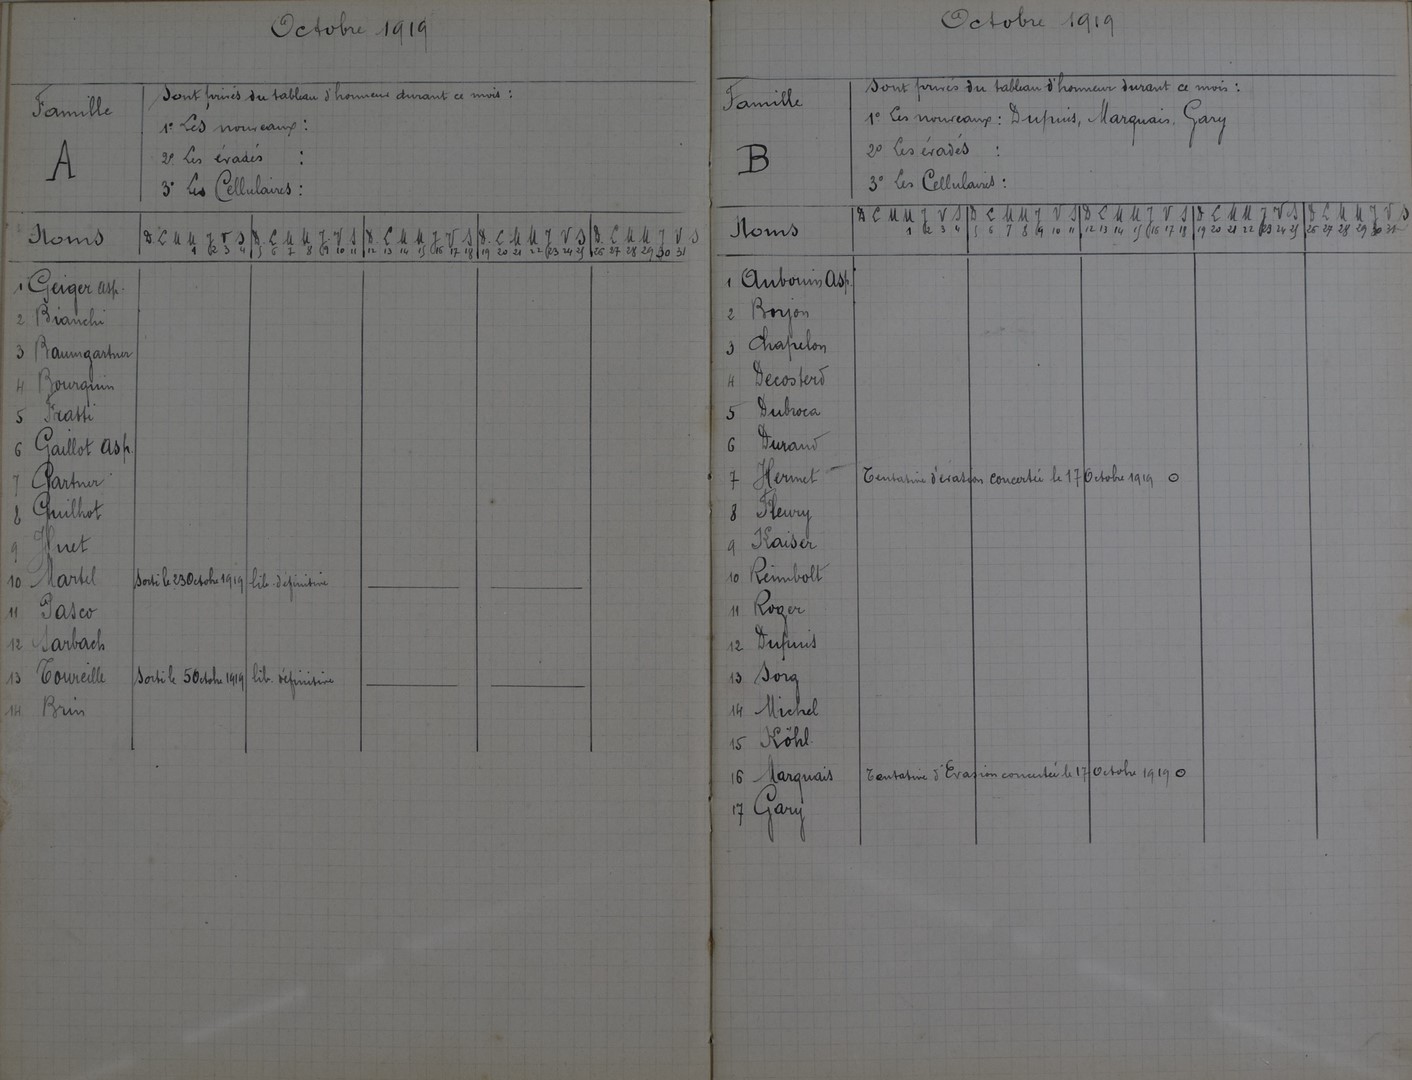 Octobre 1919
Famille
A
Sont privés du tableau d'honneur durant ce mois :
1° Les nouveaux :
2° Les évadés :
3° Les Cellulaires :
Noms D L M M J V S D L M M J V S D L M M J V S D L M M J V S D L M M J V S
1 2 3 4 5 6 7 8 9 10 11 12 13 14 15 16 17 18 19 20 21 22 23 24 25 26 27 28 29 30 31
1 Geiger asp.
2 Bianchi
3 Baumgartner
4 Bourquin
5 Fratti
6 Gaillot asp.
7 Gartner
8 Guilhot
9 Huet
10 Martel Sorti le 23 Octobre 1919 lib. définitive
11 Pasco
12 Sarbach
13 Toureille Sorti le 5 Octobre 1919 lib. définitive
14 Brin
Octobre 1919
Famille
B
Sont privés du tableau d'honneur durant ce mois :
1° Les nouveaux : Dupuis, Marquais, Gary
2° Les évadés :
3° Les Cellulaires :
Noms D L M M J V S D L M M J V S D L M M J V S D L M M J V S D L M M J V S
1 2 3 4 5 6 7 8 9 10 11 12 13 14 15 16 17 18 19 20 21 22 23 24 25 26 27 28 29 30 31
1 Aubouin Asp.
2 Borjon
3 Chapelon
4 Decosterd
5 Dubroca
6 Durand
7 Hermet Tentative d'évasion concertée le 17 Octobre 1919 0
8 Fleury
9 Kaiser
10 Reimbolt
11 Roger
12 Dupuis
13 Sorg
14 Michel
15 Köhl
16 Marquais Tentative d'Evasion concertée le 17 Octobre 1919 0
17 Gary